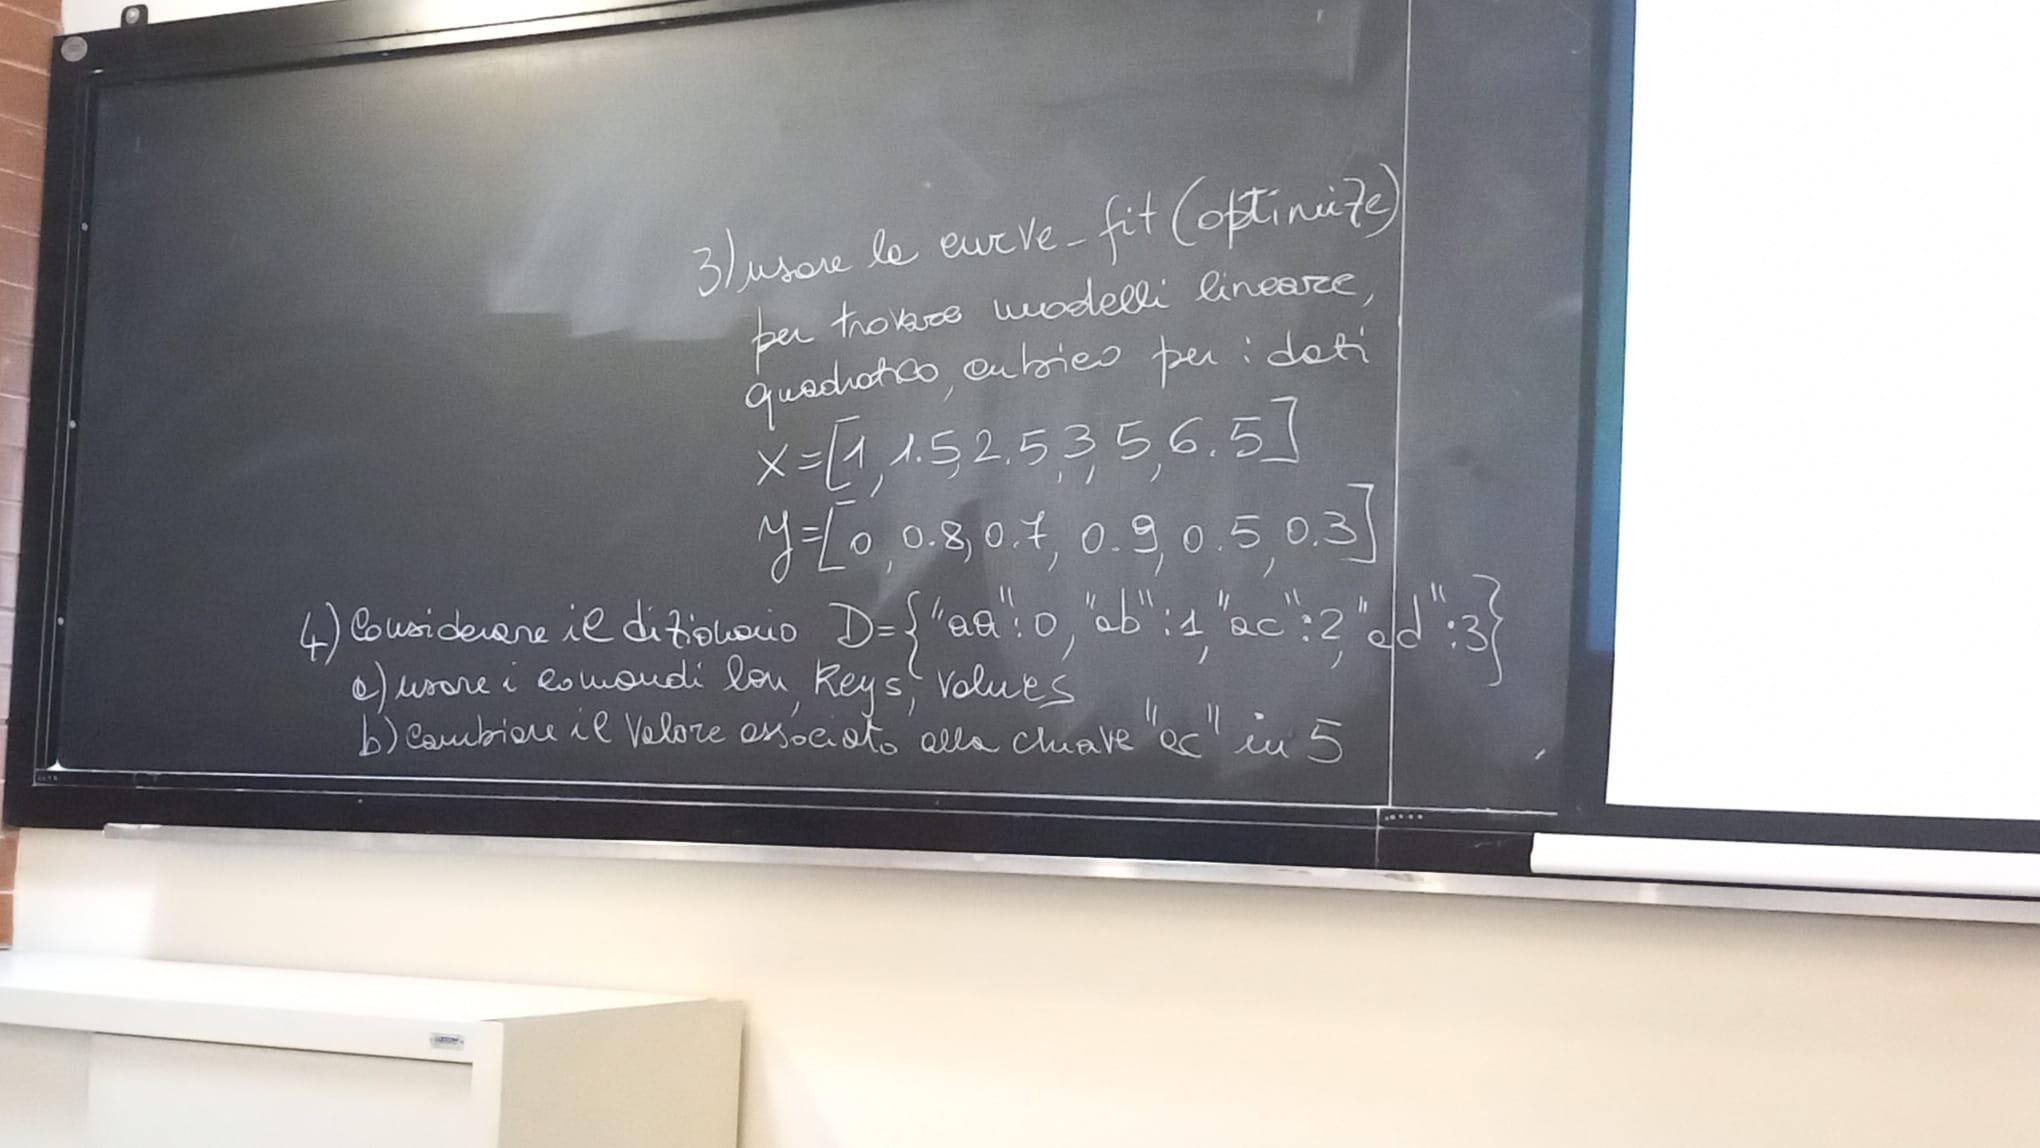 3) usare le curve_fit (optimize)
per trovare modelli lineare,
quadratico, cubico per i dati
x=[1, 1.5, 2.5, 3, 5, 6.5]
y=[0, 0.8, 0.7, 0.9, 0.5, 0.3]
4) Considerare il dizionario D={"aa":0, "ab":1, "ac":2, "ad":3}
a) usare i comandi len, keys, values
b) Cambiare il valore associato alla chiave "ac" in 5